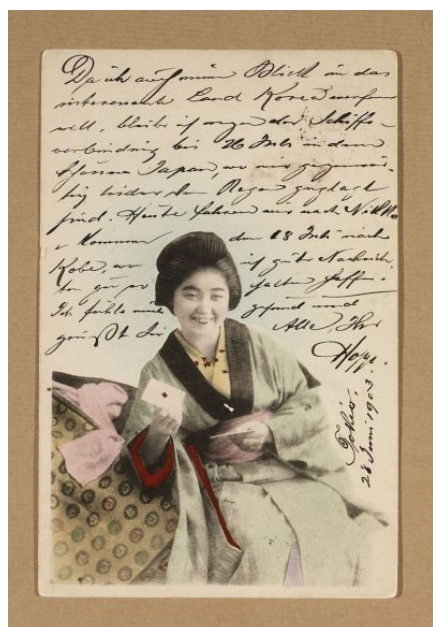 Da ich auch einen Blick in das
interessante Land Korea werfen
will, bleibe ich wegen der Schiffs-
verbindung bis 26 Juli in dem
schönen Japan, wo wir gegenwär-
tig leider vom Regen geplagt
sind. Heute fahren wir nach Nikko
u kommen den 18 Juli nach
Kobe, wo ich gute Nachrich-
ten zu erhalten hoffe.
Ich fühle mich gesund und
grüßt Sie Alle, Ihr
Hopp.
Tokio.
28 Juni 1903